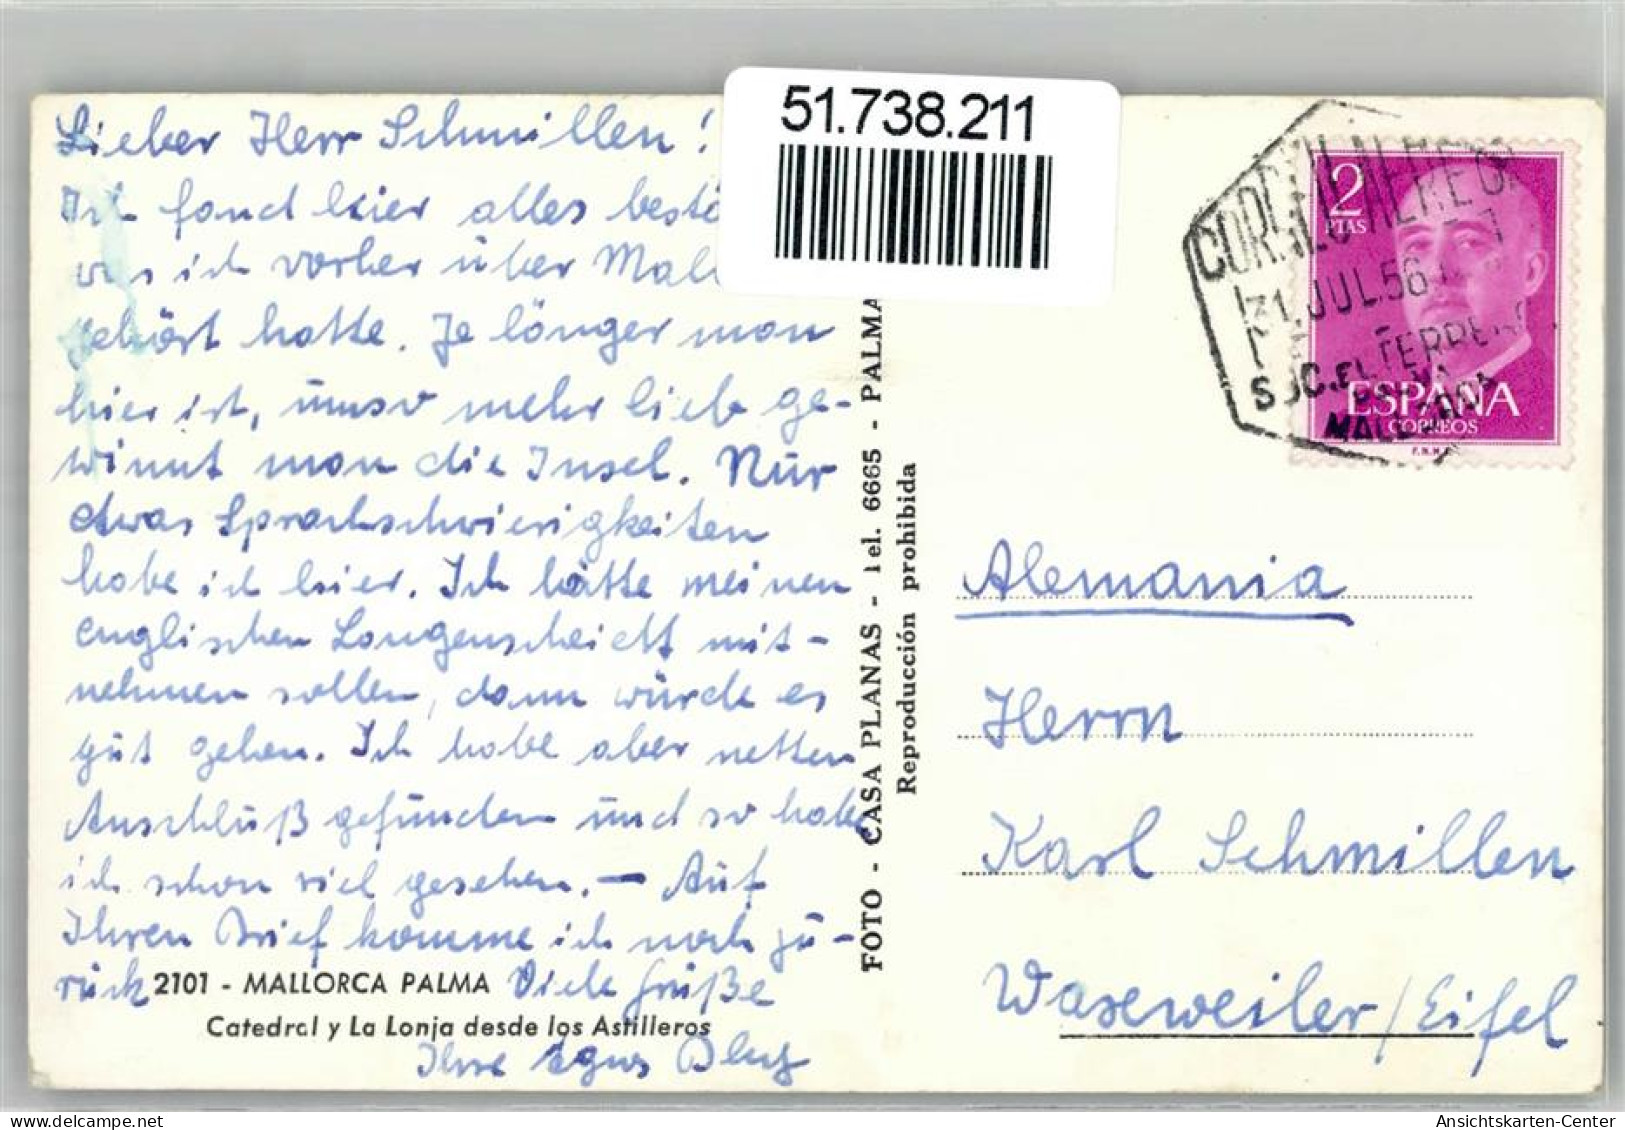 51.738.211
Lieber Herr Schmillen!
Ich fand hier alles bestä
was ich vorher über Mall
gehört hatte. Je länger man
hier ist, umso mehr lieb ge-
winnt man die Insel. Nur
etwas Sprachschwierigkeiten
habe ich hier. Ich hätte meinen
englischen Langenscheidt mit-
nehmen sollen, dann würde es
gut gehen. Ich habe aber netten
Anschluß gefunden und so habe
ich schon viel gesehen. — Auf
Ihren Brief komme ich noch zu-
rück
Viele Grüße
Ihre Agnes
2101 - MALLORCA PALMA
Catedral y La Lonja desde los Astilleros
FOTO - CASA PLANAS - Tel. 6665 - PALMA
Reproducción prohibida
CORREO AEREO
31 JUL. 56
SUC. EL TERRENO
PALMA
MALLORCA
2
PTAS
ESPAÑA
CORREOS
F.N.M.T.
Alemania
Herrn
Karl Schmillen
Waxweiler/Eifel
Ansichtskarten-Center